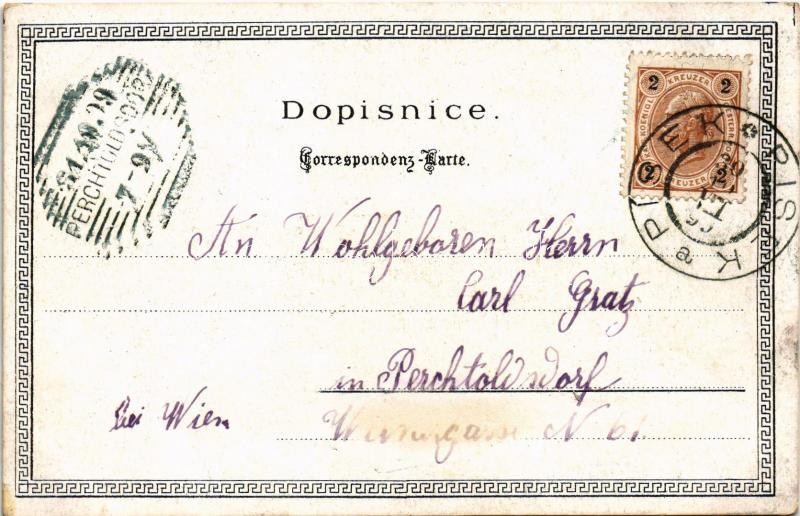 Dopisnice.
Correspondenz-Karte.
2 KREUZER 2
2 KREUZER 2
PERCHTOLDSDORF
PISEK PÍSEK
An Wohlgeboren Herrn
Carl Gratz
in Perchtoldsdorf
bei Wien
N 61